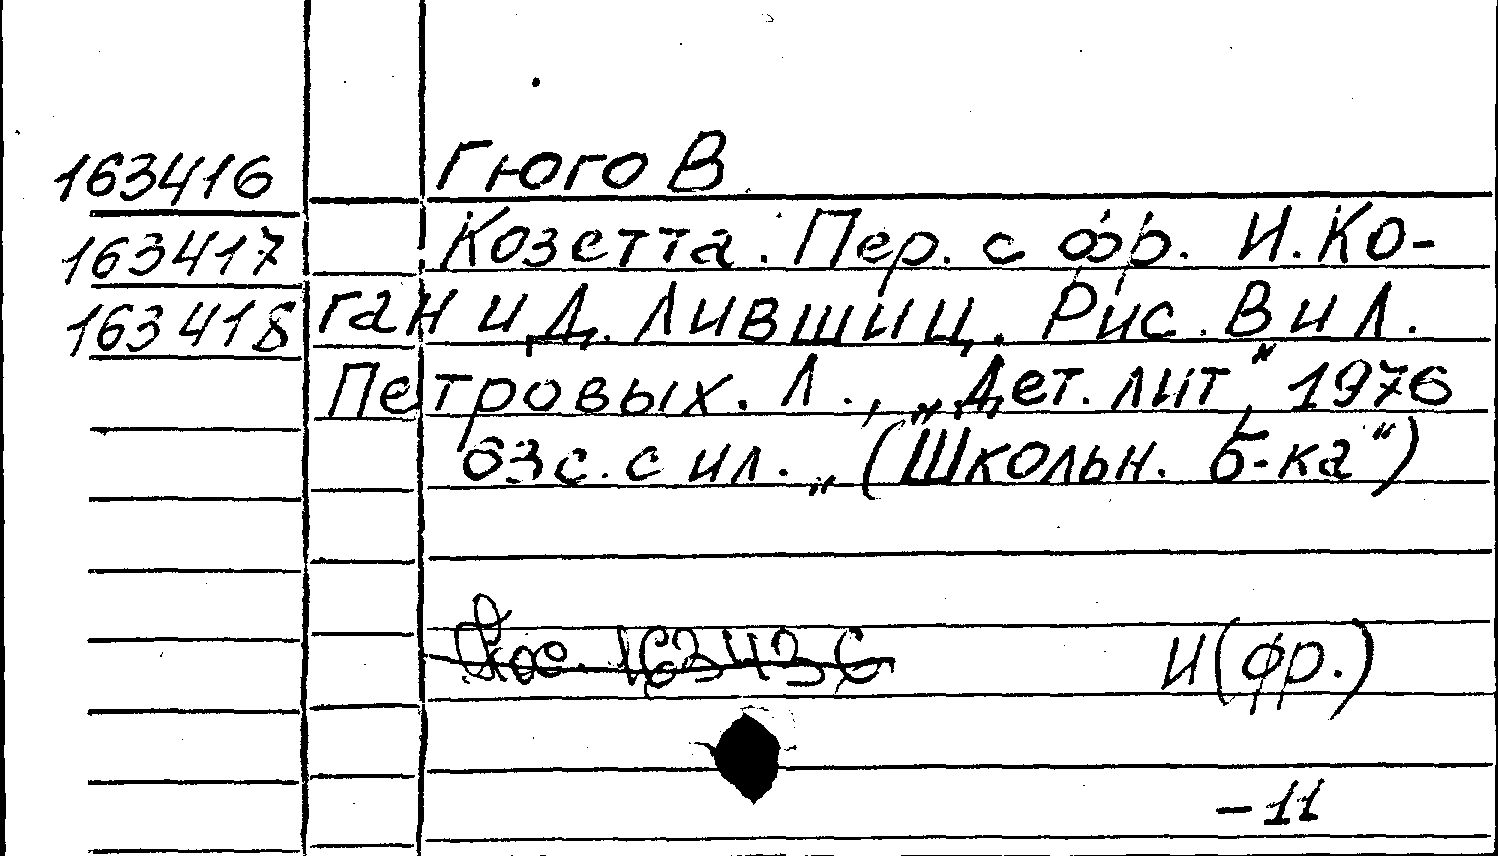 163416 Гюго В
163417 Козетта. Пер. с фр. И. Ко-
163418 ган и Д. Лившиц. Рис. В и Л.
Петровых. Л., „Дет. лит“, 1976
63 с. с ил. „(Школьн. б-ка“)
163436
И (фр.)
– 11